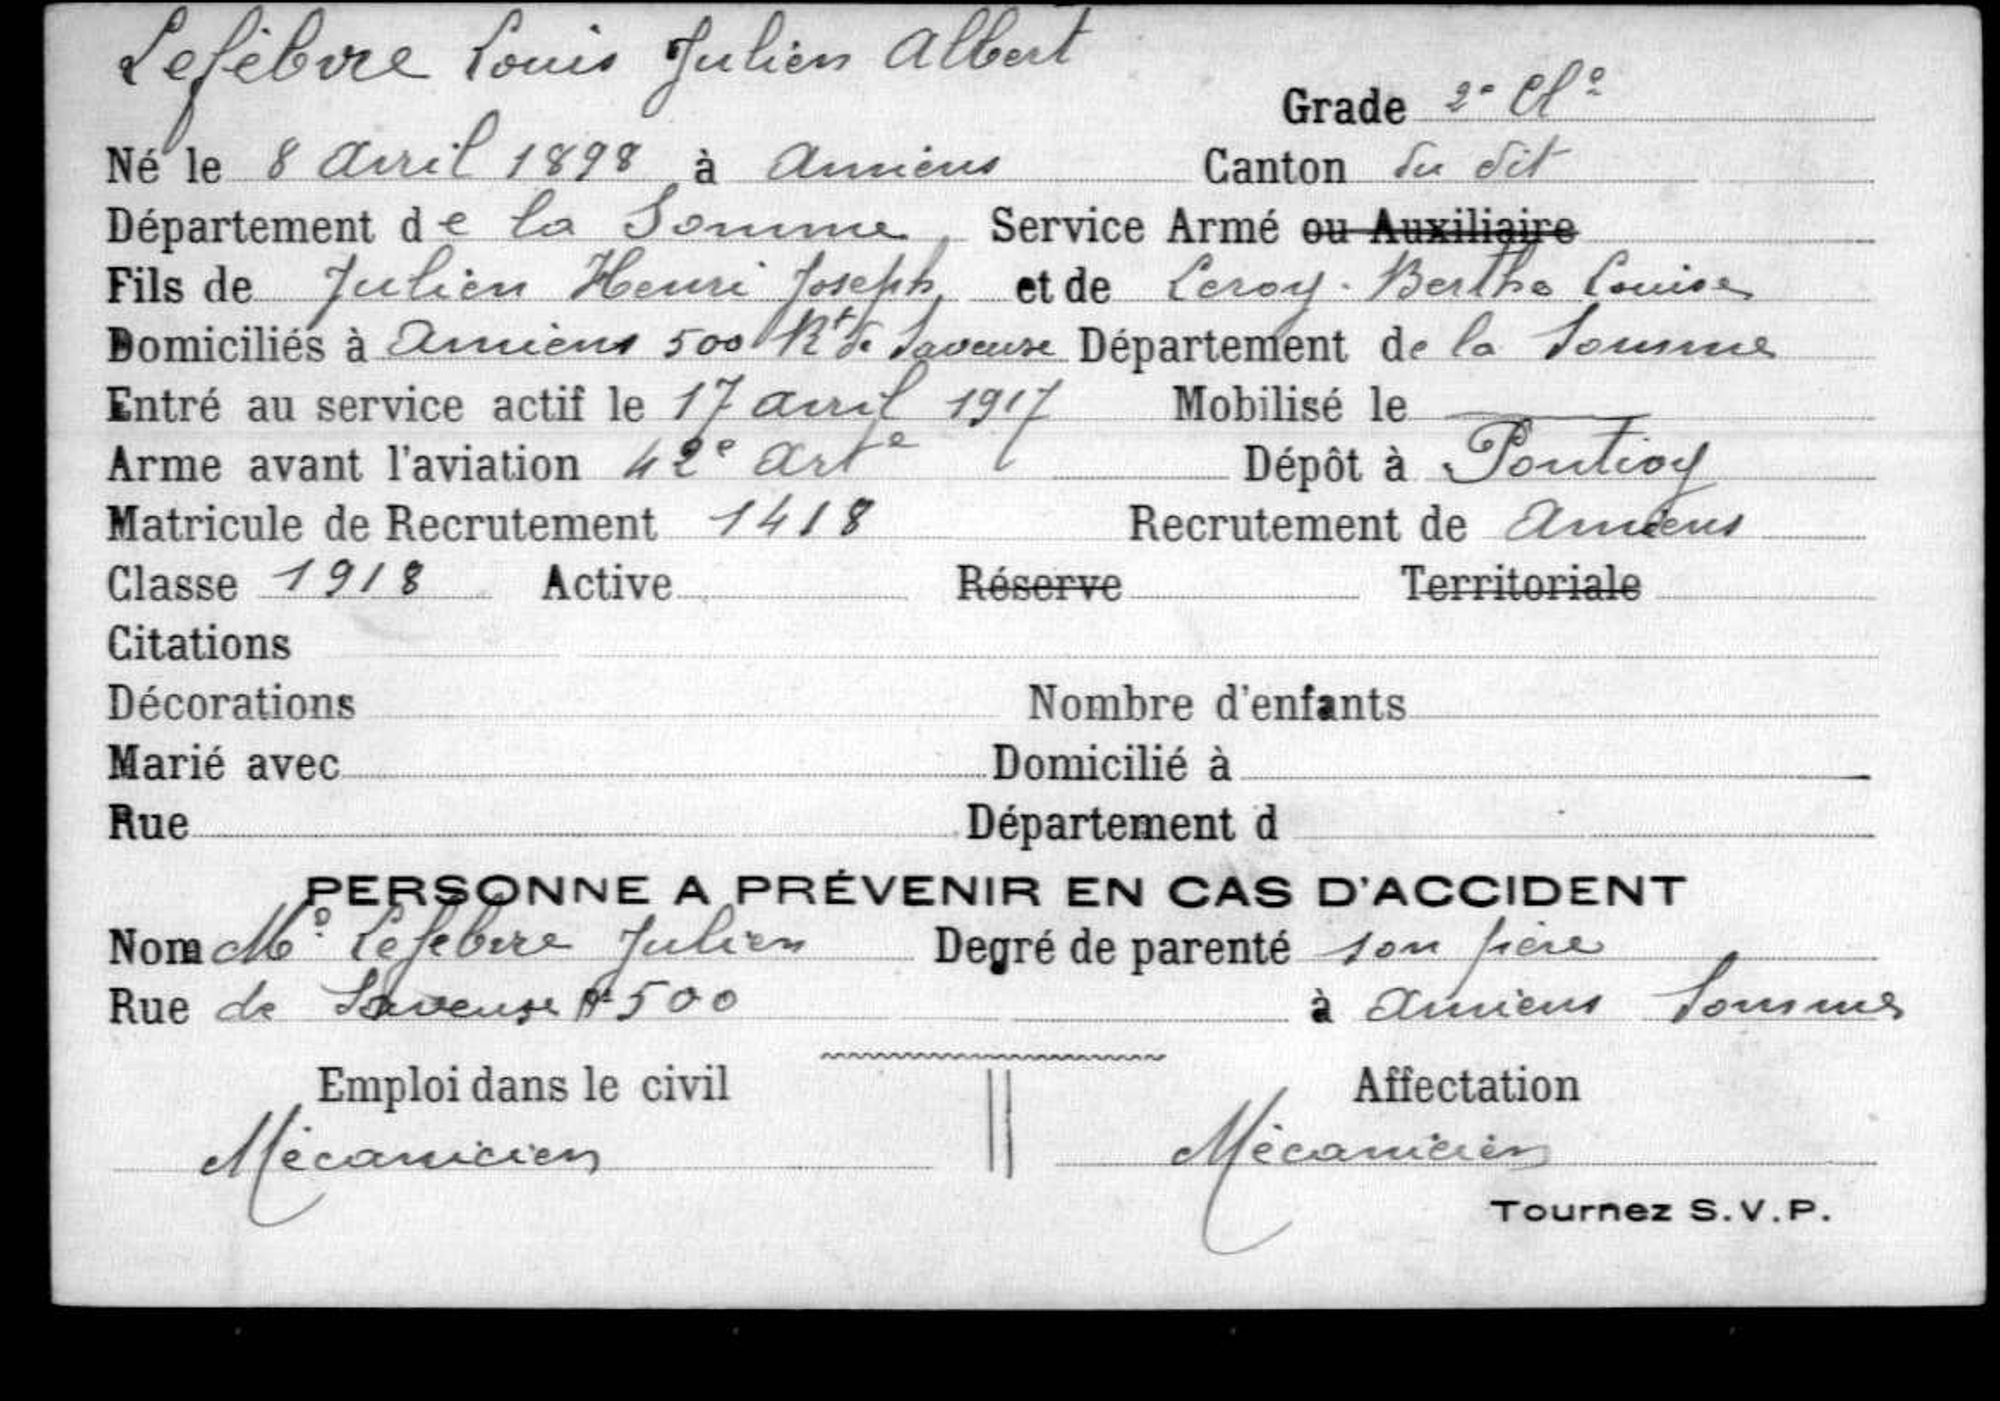 Lefèbvre Louis Julien Albert
Grade 2e Cle
Né le 8 Avril 1898 à Amiens Canton du dit
Département de la Somme Service Armé ou Auxiliaire
Fils de Julien Henri Joseph et de Leroy Berthe Louise
Domiciliés à Amiens 500 Rt de Saveuse Département de la Somme
Entré au service actif le 17 avril 1917 Mobilisé le
Arme avant l'aviation 42e Arte Dépôt à Pontivy
Matricule de Recrutement 1418 Recrutement de Amiens
Classe 1918 Active Réserve Territoriale
Citations
Décorations Nombre d'enfants
Marié avec Domicilié à
Rue Département d
PERSONNE A PRÉVENIR EN CAS D'ACCIDENT
Nom Mr Lefebvre Julien Degré de parenté son père
Rue de Saveuse 500 à Amiens Somme
Emploi dans le civil Affectation
Mécanicien Mécanicien
Tournez S.V.P.